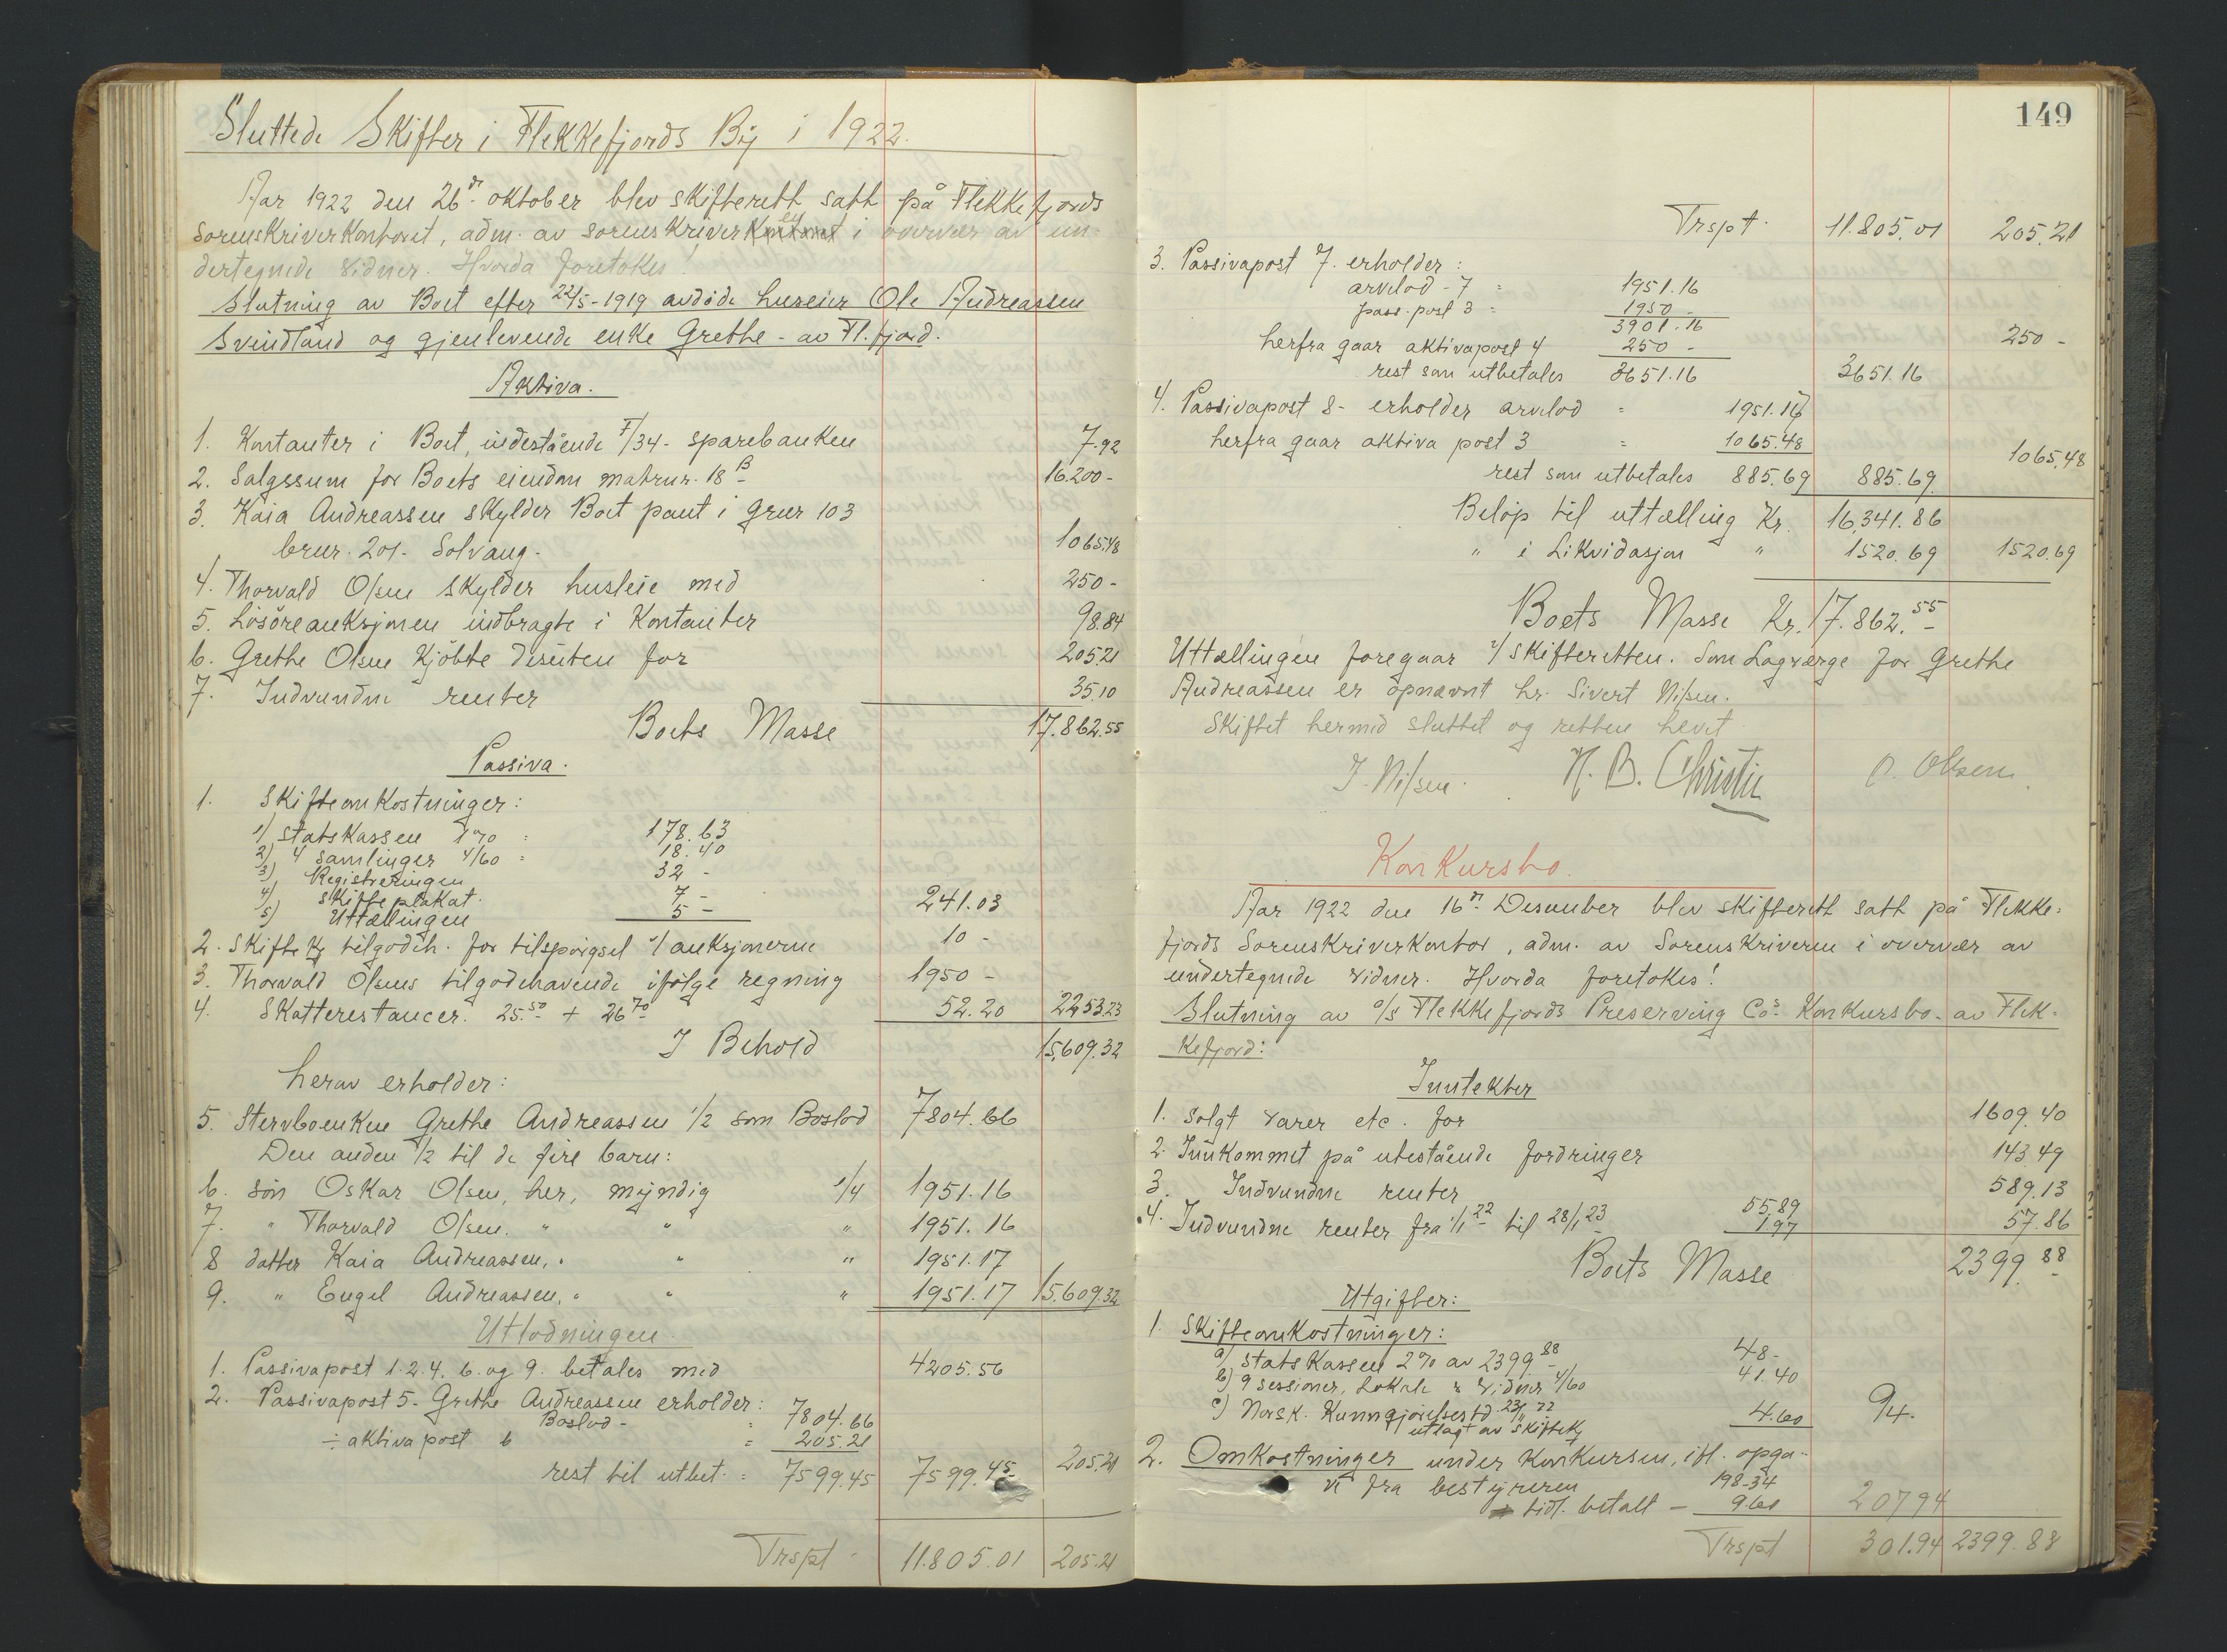 Sluttede Skifter i Flekkefjords By i 1922.
Aar 1922 den 26de oktober blev skifterett satt på Flekkefjords
Sorenskriverkontoret, adm. av sorenskriveren i overvær av un-
dertegnede vidner. Hvorda foretokes!
Slutning av Boet efter 22/5-1919 avdöde huseier Ole Andreassen
Svindland og gjenlevende enke Grethe - av Fl.fjord.
Aktiva.
1. Kontanter i Boet, indestående F/34 - sparebanken 7.92
2. Salgssum for Boets eiendom matrnr. 18 B 16.200 -
3. Kaia Andreassen skylder Boet pant i grnr 103
brnr. 201 - Solvang - 1065.48
4. Thorvald Olsen skylder husleie med 250 -
5. Lösöreauksjonen indbragte i Kontanter 98.84
6. Grethe Olsen kjöbte desuten for 205.21
7. Indvundne renter 35.10
Boets Masse 17.862.55
Passiva.
1. Skifteomkostninger:
1) statskassen 1% = 178.63
2) 4 samlinger 4/60 = 18.40
3) Registreringen 32 -
4) Skifteplakat. 7 -
5) Uttællingen 5 - 241.03
2. Skifte tilgodeh. for tilspörgsel v/ auksjonerne 10 -
3. Thorvald Olsens tilgodehavende ifölge regning 1950 -
4. Skatterestancer. 25.50 + 26.70 52.20 2253.23
I Behold 15.609.32
herav erholder:
5. Stervboenken Grethe Andreassen 1/2 som Boslod 7804.66
Den anden 1/2 til de fire barn:
6. sön Oskar Olsen, her, myndig 1/4 1951.16
7. " Thorvald Olsen. " " " 1951.16
8 datter Kaia Andreassen, " " " 1951.17
9. " Engel Andreassen, " " " 1951.17 15.609.32
Utlodningen.
1. Passivapost 1.2.4. 6. og 9. betales med 4205.56
2. Passivapost 5 - Grethe Andreassen erholder:
Boslod - = 7804.66
÷ aktiva post 6 = 205.21 205.21
rest til utbet. = 7599.45 7599.45
Trspt - 11.805.01 205.21
149
Trspt. 11.805.01 205.21
3. Passivapost 7. erholder:
arvelod - 7 = 1951.16
pass. post 3 = 1950 -
3901.16
herfra gaar aktivapost 4 250 - 250 -
rest som utbetales 3651.16 3651.16
4. Passivapost 8 - erholder arvelod = 1951.17
herfra gaar aktiva post 3 = 1065.48 1065.48
rest som utbetales 885.69 885.69
Belöp til uttælling Kr. 16.341.86
" i Likvidasjon " 1520.69 1520.69
Boets Masse Kr. 17.862.55
Uttællingen foregaar v/ skifteretten. Som Lagværge for Grethe
Andreassen er opnævnt hr. Sivert Nilsen.
Skiftet hermed sluttet og retten hevet
J. Nilsen. N. B. Christie O. Olsen.
Konkursbo.
Aar 1922 den 16de Desember blev skifterett satt på Flekke-
fjords Sorenskriverkontor, adm. av Sorenskriveren i overvær av
undertegnede vidner. Hvorda foretokes!
Slutning av a/s Flekkefjords Preserving Co's Konkursbo - av Flek-
kefjord:
Inntekter
1. solgt varer etc. for 1609.40
2. Innkommet på utestående fordringer 143.49
3. Indvundne renter 589.13
4. Indvundne renter fra 1/1 22 til 28/1 23 55.89
1.97 57.86
Boets Masse 2399.88
Utgifter:
1. Skifteomkostninger:
a) statskassen 2% av 2399.88 48 -
b) 9 sessioner, Lokale & vidner 4/60 41.40
c) Norsk. Kunngjörelsestd. 23/11 22
utlagt av skiftek. 4.60 94.
2. Omkostninger under konkursen, ifl. opga-
ve fra bestyreren 198.34
tidl. betalt - 9.60 207.94
Trspt 301.94 2399.88